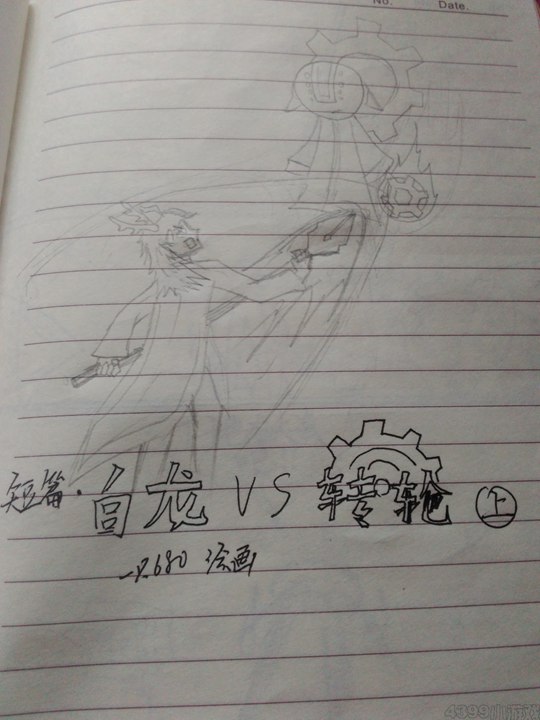 No. Date.
短篇·白龙 VS 转轮 上
680 绘画
4399小游戏